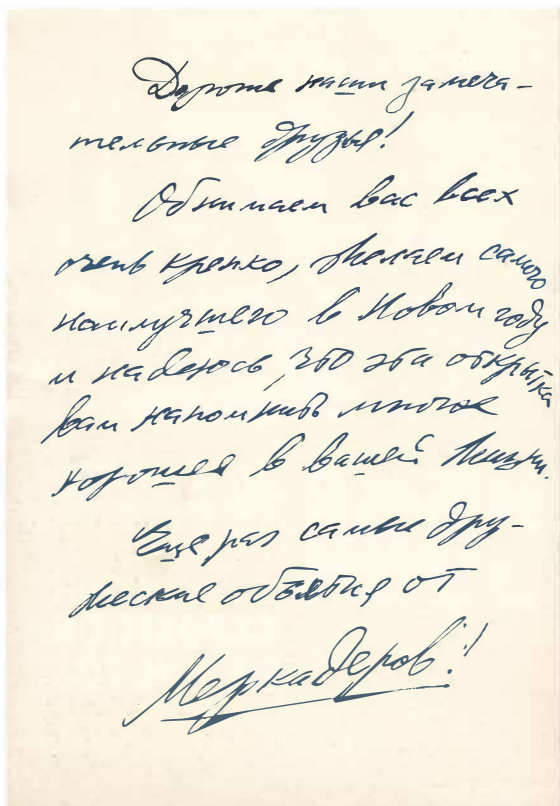 Дорогие наши замеча-
тельные друзья!
Обнимаем вас всех
очень крепко, желаем самого
наилучшего в Новом году
и надеюсь, что эта открытка
вам напомнит многое
хорошее в вашей жизни.
Еще раз самые дру-
жеские объятия от
Меркадеров!